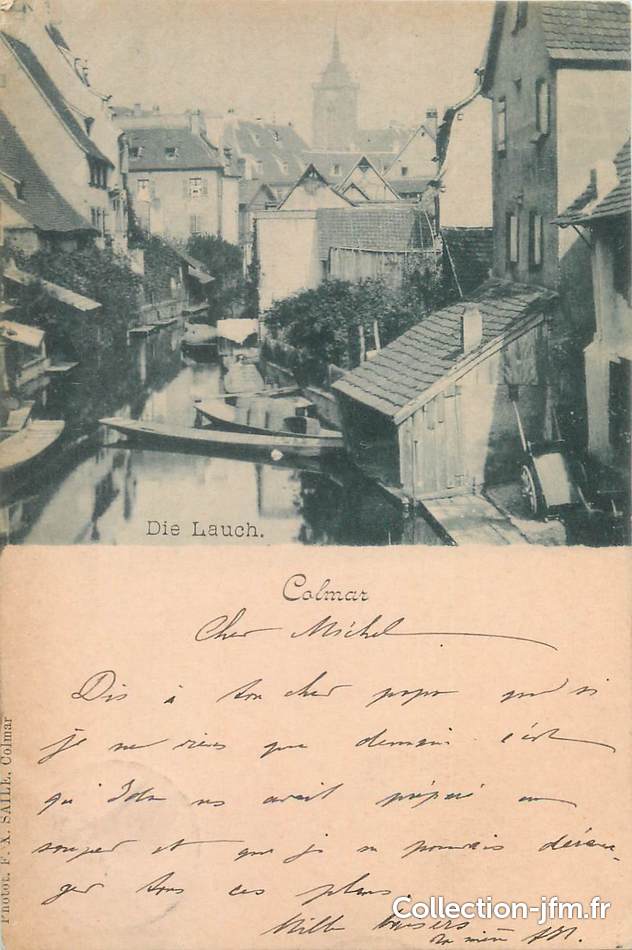 Die Lauch.
Colmar
Cher Michel
Dis à ton cher papa que si
je ne viens que demain c'est
qu'Ida ns avait préparé un
souper et que je ne pouvais déran-
ger tous ces plans.
Mille baisers
ta mère
Photot. F. X. SAILE, Colmar
Collection-jfm.fr